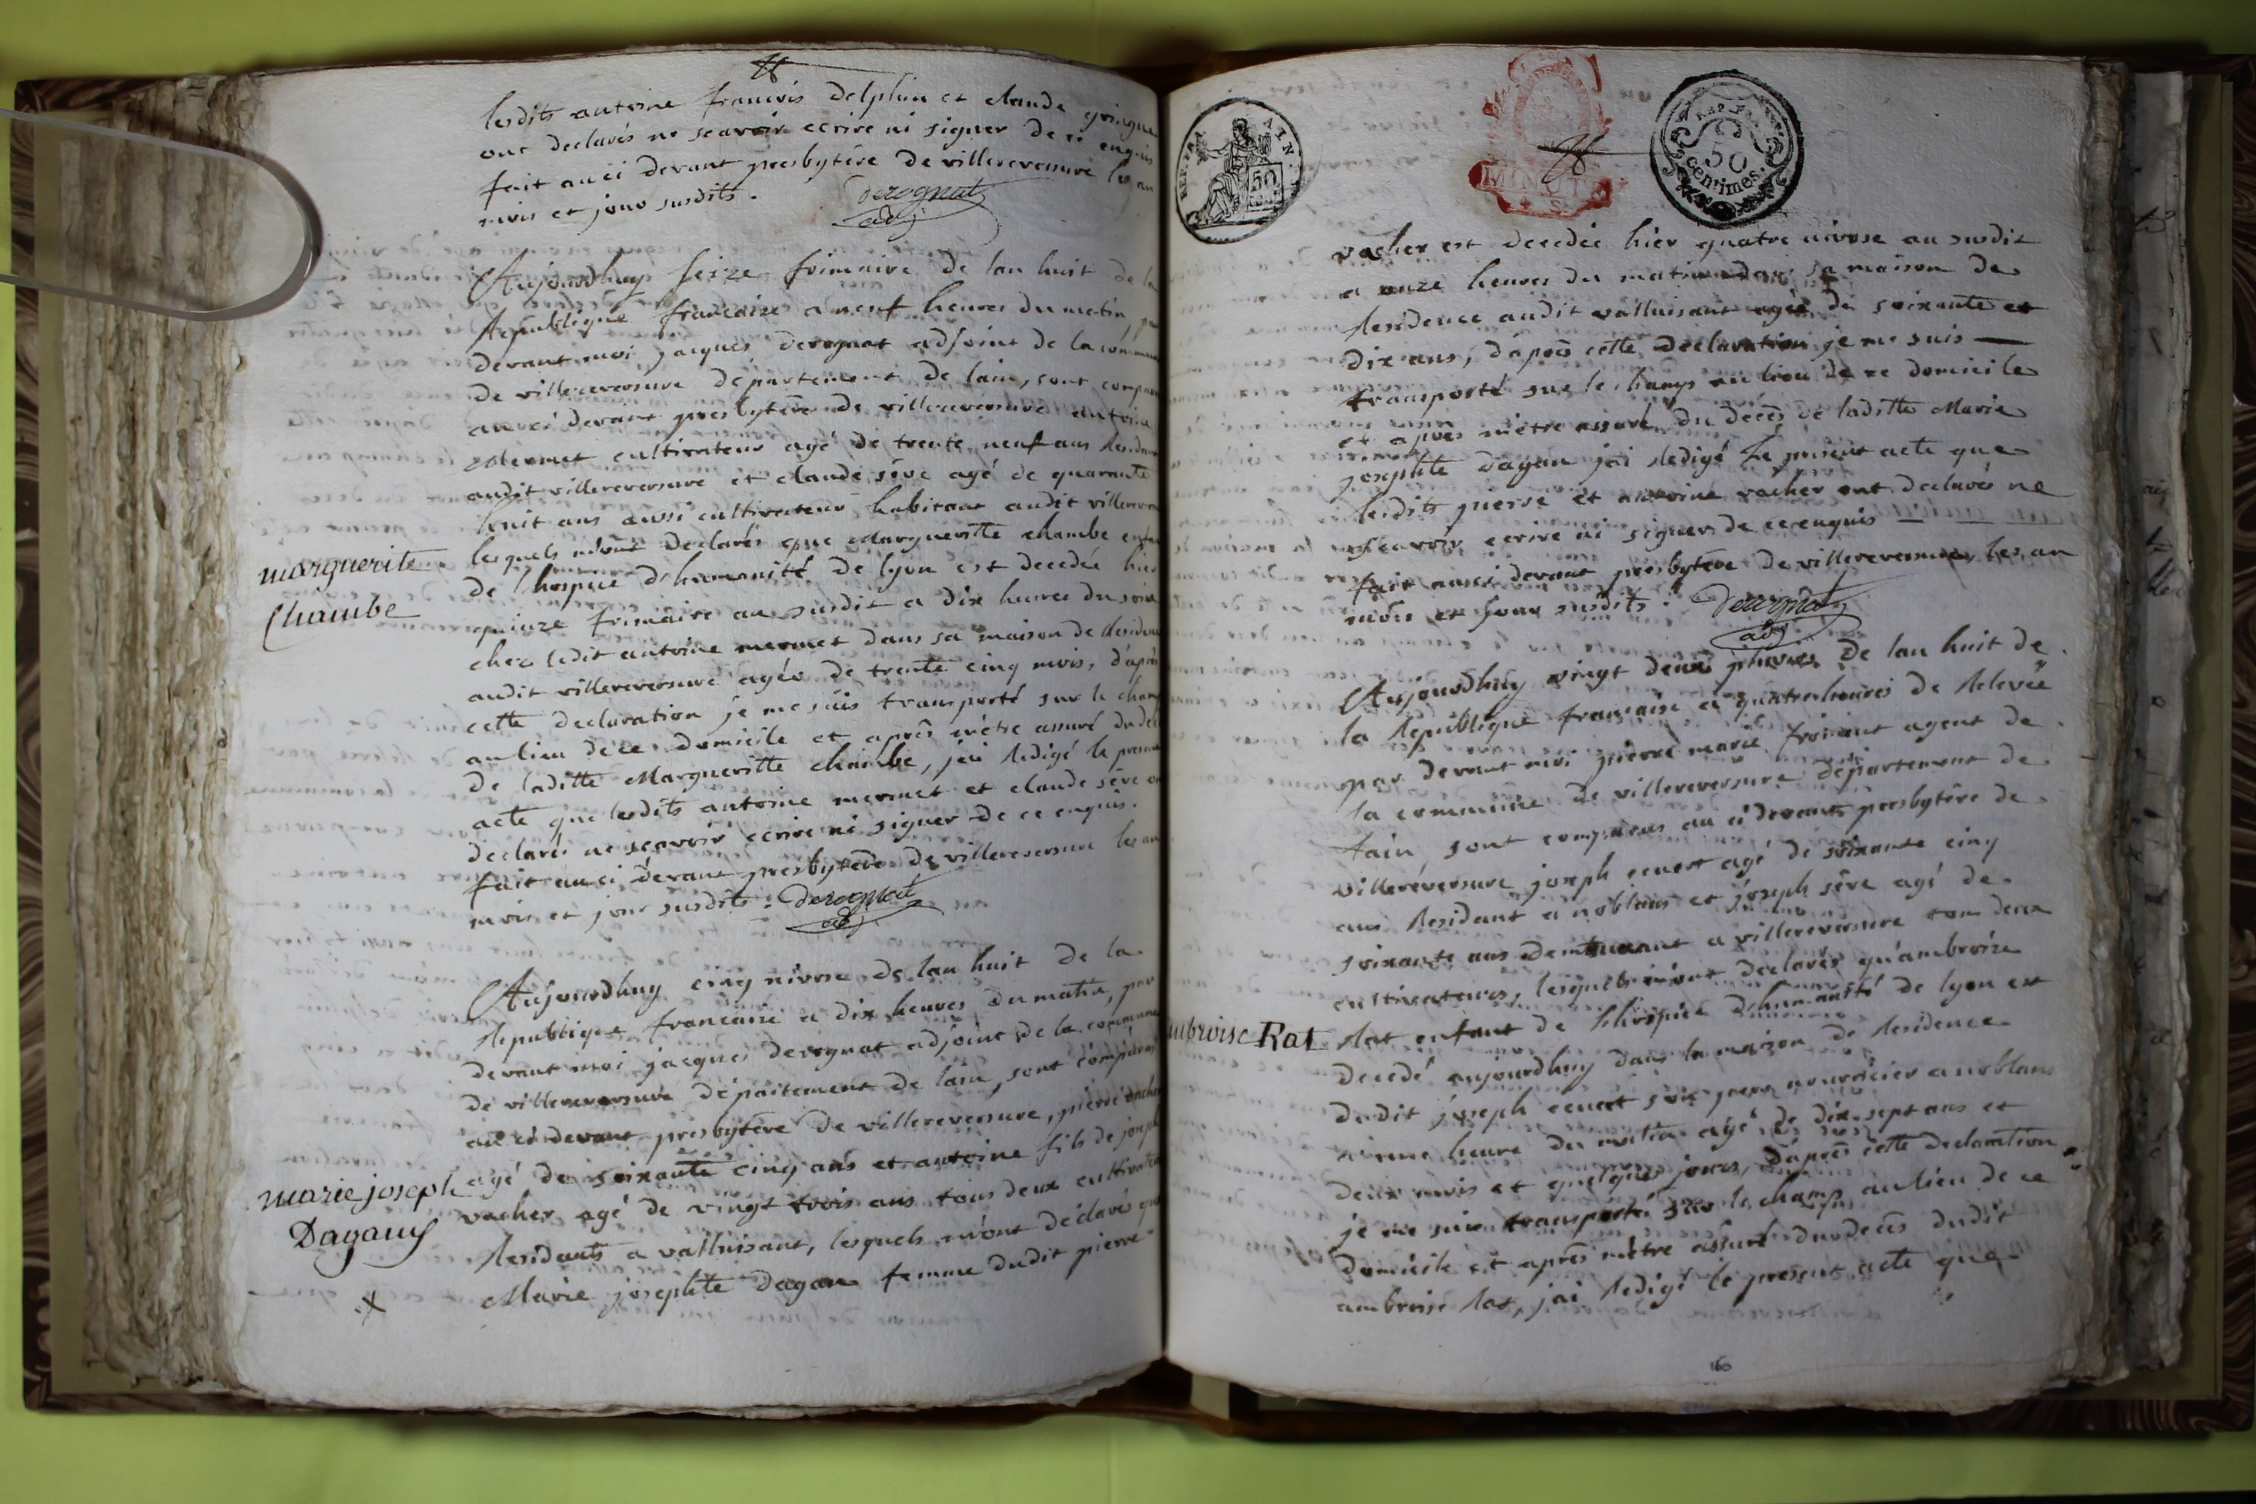 lesdits antoine francois Delphin et claude
ont declarés ne scavoir ecrire ni signer de ce enquis
fait au ci devant presbytére de villereversure les an
mois et jour susdits.
derognat
adj
Aujourdhuy seize frimaire de lan huit de la
Republique francaise a neuf heures du matin, par
devant moi jacques derognat adjoint de la commune
de villereversure departement de lain, sont comparus
au ci devant presbytére de villereversure antoine
mermet cultivateur agé de trente neuf ans Residant
audit villereversure et claude séve agé de quarante
huit ans aussi cultivateur habitant audit villereversure
lesquels m'ont declarés que Margueritte chambe enfant
marguerite
Chambe
de l'hospice d'humanité de lyon est decedée hier
quinze frimaire an susdit a dix heures du soir
chez ledit antoine mermet dans sa maison de Residence
audit villereversure agée de trente cinq mois, d'aprés
cette declaration je me suis transporté sur le champ
au lieu de ce domicile et aprés m'etre assuré du décés
de laditte Margueritte chambe, jai Redigé le present
acte que lesdits antoine mermet et claude séve ont
declarés ne scavoir ecrire ni signer de ce enquis.
fait au ci devant presbytére de villereversure les an
mois et jour susdits. derognat
adj
Aujourdhuy cinq nivose de lan huit de la
Republique francaise a dix heures du matin, par
devant moi jacques derognat adjoint de la commune
de villereversure departement de lain, sont comparus
au ci devant presbytére de villereversure, pierre vacher
agé de soixante cinq ans et antoine fils de joseph
marie joseph
Dagan
vacher agé de vingt trois ans tous deux cultivateurs
Residants a valluisant, lesquels m'ont déclarés que
Marie josephte dagan femme dudit pierre
REP. FRA
50
MINUTE
REP. FRA
50
centimes.
vacher est decedée hier quatre nivose an susdit
a onze heures du matin dans sa maison de
Residence audit valluisant agée de soixante et
dix ans, d'aprés cette declaration je me suis
transporté sur le champ au lieu de ce domicile
et aprés m'etre assuré du décés de laditte Marie
josephte dagan jai Redigé le present acte que
lesdits pierre et antoine vacher ont declarés ne
scavoir ecrire ni signer de ce enquis
fait au ci devant presbytére de villereversure les an
mois et jour susdits. Derognat
adj
Aujourdhuy vingt deux pluviose de lan huit de
la Republique francaise a quatre heures de Relevée
par devant moi pierre marie froment agent de
la commune de villereversure departement de
lain, sont comparus au ci devant presbytére de
villereversure joseph agé de soixante cinq
ans Residant a noblans et joseph séve agé de
soixante ans demeurant a villereversure tous deux
cultivateurs, lesquels m'ont declarés qu'ambroise
Rat enfant de l'hospice d'humanité de lyon est
ambroise Rat
decedé aujourdhuy dans la maison de Residence
dudit joseph son pere nourricier a noblans
a une heure du matin agé de dix sept ans et
deux mois et quelques jours, d'aprés cette declaration
je me suis transporté sur le champ au lieu de ce
domicile et aprés m'etre assuré du décés dudit
ambroise Rat, jai Redigé le present acte que